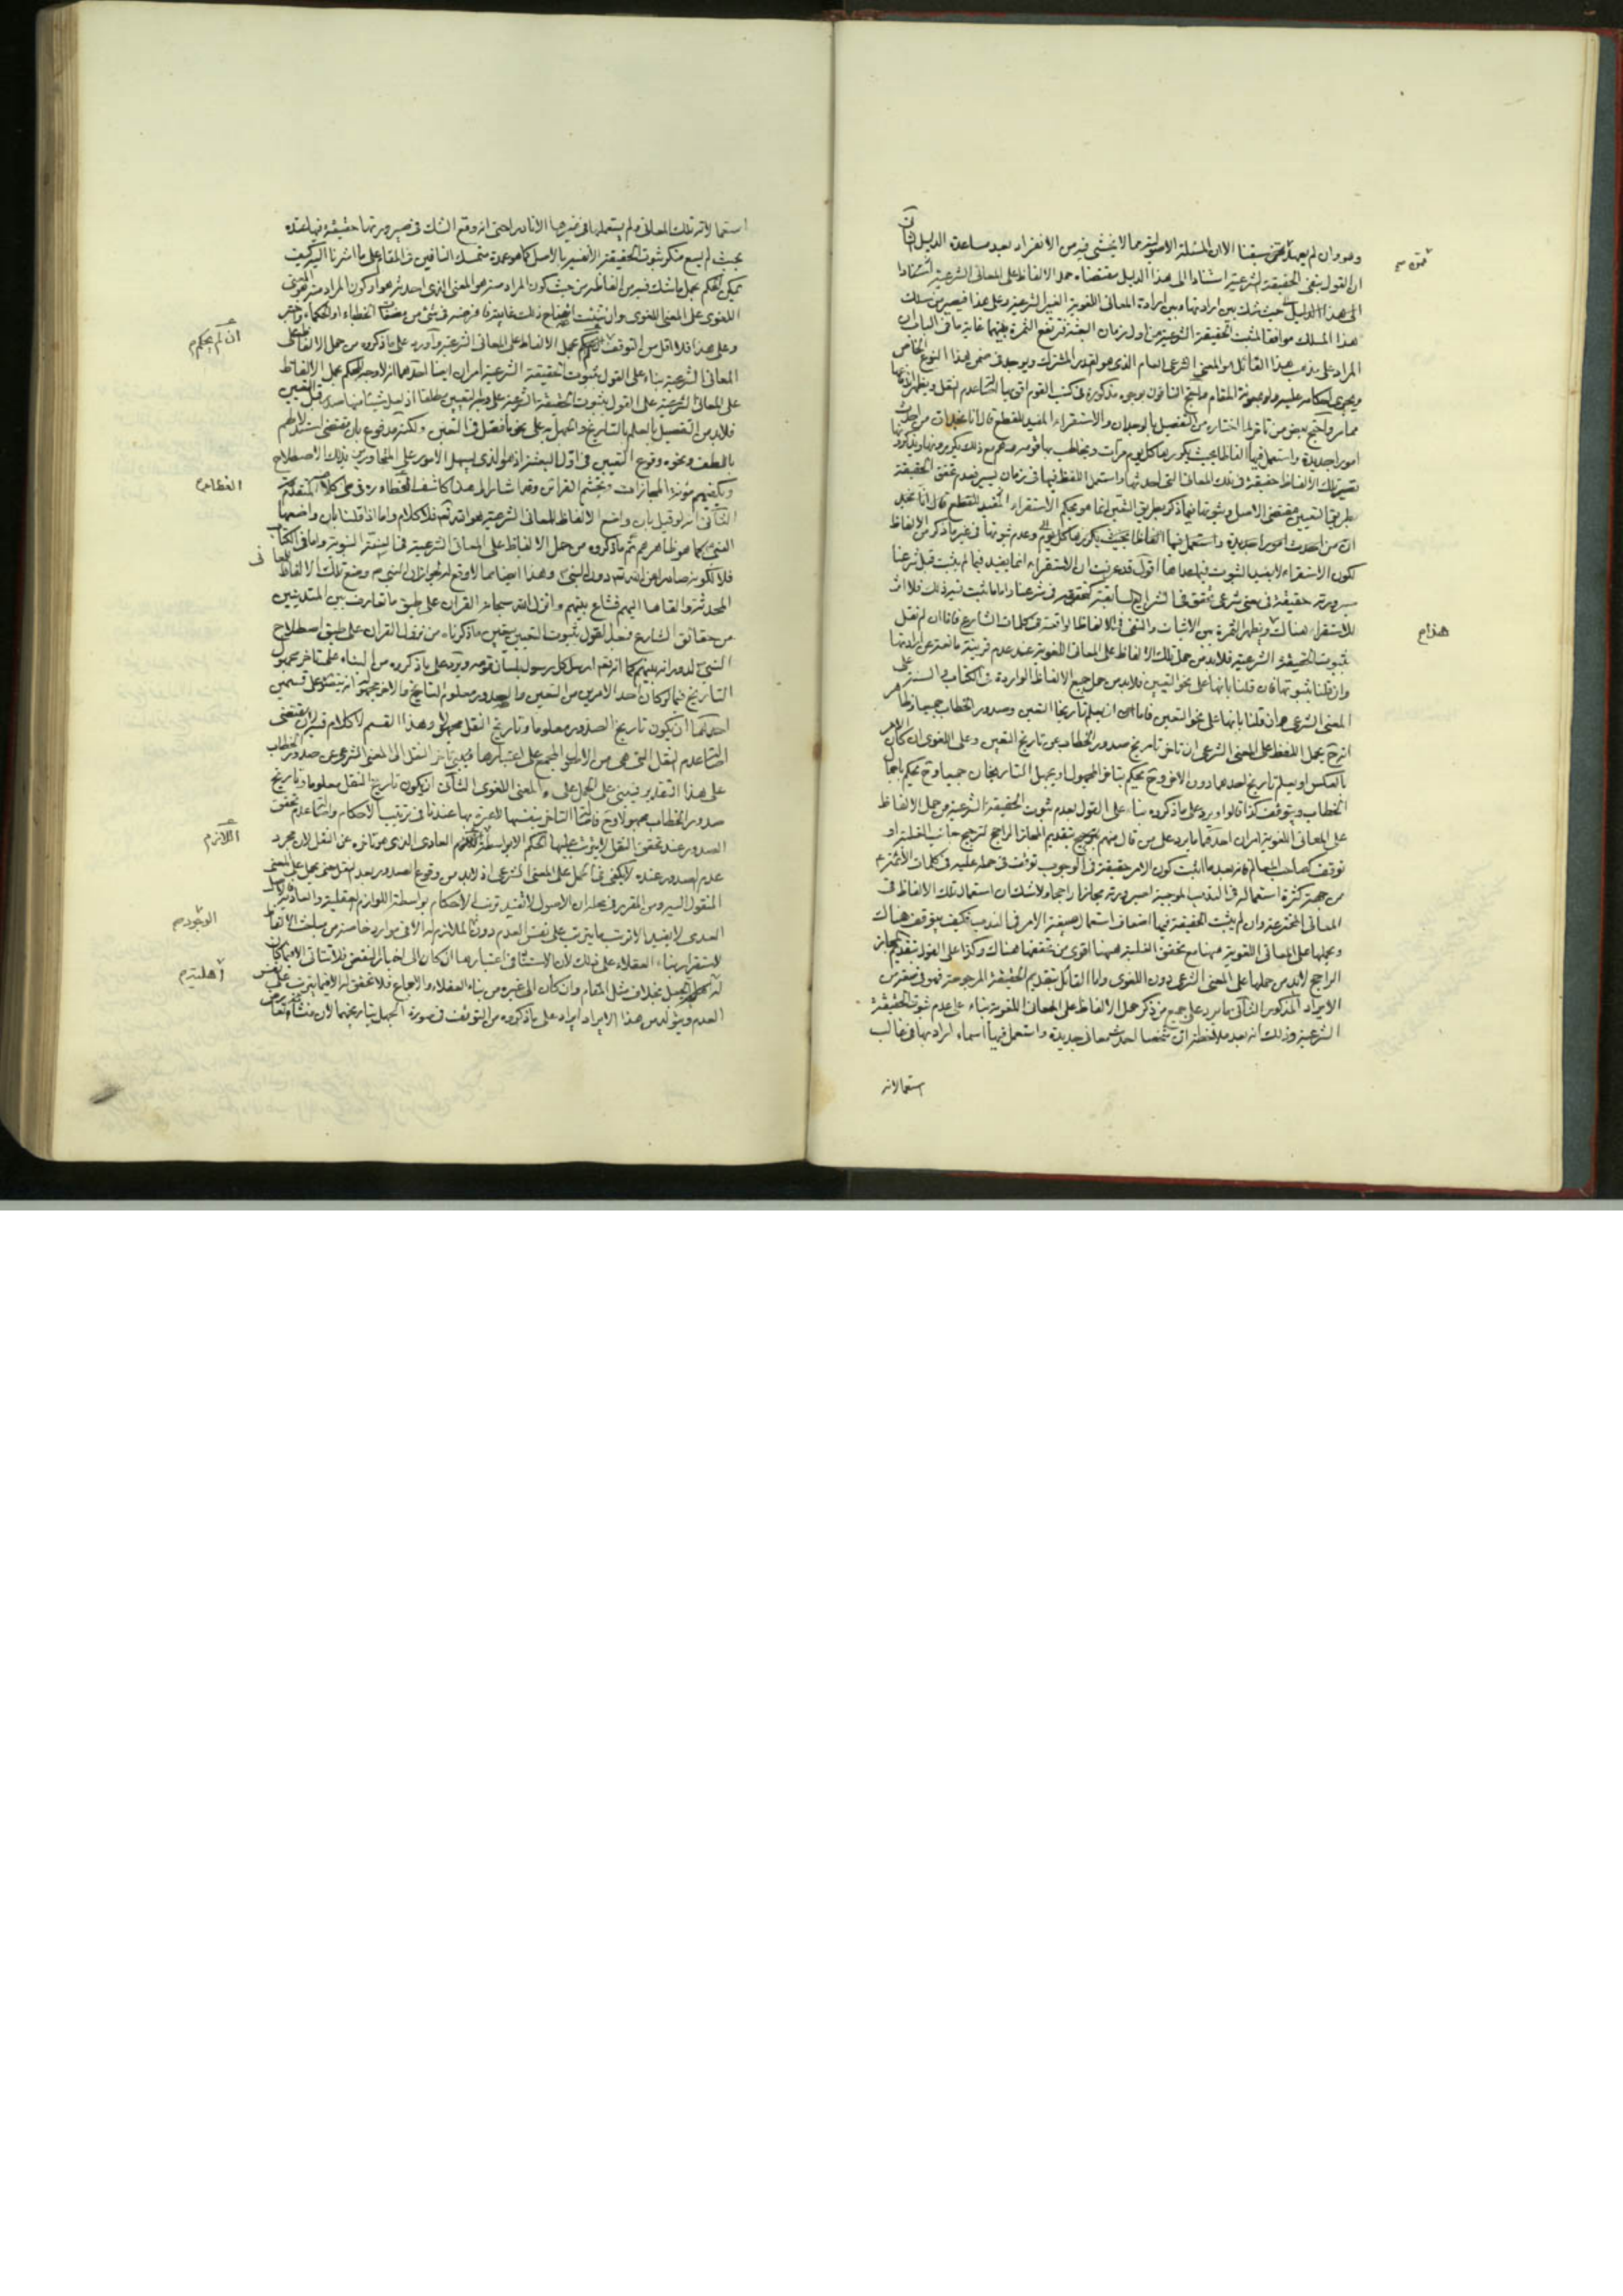 وهو وان لم يعهد ممن سبقنا الا ان المسئلة الاصولية مما لا يخشى فيه من الانفراد بعد مساعدة الدليل الثانى
ان القول بنفى الحقيقة الشرعية استنادا الى هذا الدليل مقتضاه حمل الالفاظ على المعانى الشرعية استنادا
الى هذا الدليل حيث شك بين ارادتها وبين ارادة المعانى اللغوية الغير الشرعية وعلى هذا فيصير من سلك
هذا المسلك موافقا لمثبت الحقيقة الشرعية من اول زمان البعثة فترتفع الثمرة بينهما غاية ما فى الباب ان
المراد على مذهب هذا القائل هو المعنى الشرعى العام الذى هو القدر المشترك ويوجد فى ضمن هذا النوع الخاص
ويجرى احكامه عليه ولو بمعونة المقام واحتج النافون بوجوه مذكورة فى كتب القوم
مما مر واحتج بعض من تاخر لما اختاره من التفصيل بالوجدان والاستقراء المفيد للقطع قال انا نجد ان من احدث
امورا جديدة واستعمل فيها الفاظا بحيث يكررها كل يوم مرات ويخاطب بها قومه
تصير تلك الالفاظ حقيقة فى تلك المعانى التى احدثها واستعمل اللفظ فيها فى زمان يسير فعدم تحقق الحقيقة
بطريق التعيين مقتضى الاصل وثبوتها فيما ذكر بطريق التعين انما هو بحكم الاستقراء المفيد للقطع قال انا نجد
ان من احدث امورا جديدة واستعمل فيها الفاظا بحيث يكررها كل يوم وعدم ثبوتها فى غير ما ذكر من الالفاظ
لكون الاستقراء لا يفيد الثبوت فيما عداها اقول قد عرفت ان الاستقراء انما يفيد فيما لم يثبت قبل شرعنا
صيرورته حقيقة فى معنى شرعى تحقق فى الشرايع السابقة كتحققه فى شرعنا واما ما ثبت فيه ذلك فلا اثر
للاستقراء هناك ويظهر الثمرة بين الاثبات والنفى فى الالفاظ الواقعة فى كلمات الشارع فانا ان لم نقل
بثبوت الحقيقة الشرعية فلابد من حمل تلك الالفاظ على المعانى اللغوية عند عدم قرينة مانعة عن ارادتها
وان قلنا بثبوتها فان قلنا بانها على نحو التعيين فلابد من حمل جميع الالفاظ الواردة فى الكتاب والسنة على
المعنى الشرعى وان قلنا بانها على نحو التعين فاما ان يعلم تاريخا التعين وصدور الخطاب جميعا
يحمل اللفظ على المعنى الشرعى ان تاخر تاريخ صدور الخطاب عن تاريخ التعين وعلى اللغوى ان كان الامر
بالعكس او يعلم تاريخ احدهما دون الاخر وح يحكم بتاخر المجهول او يجهل التاريخان جميعا وح يحكم باجمال
الخطاب ويتوقف كذا قالوا ويرد على ما ذكروه بناء على القول بعدم ثبوت الحقيقة الشرعية من حمل الالفاظ
على المعانى اللغوية امران احدهما ما يرد على من قال منهم بتقديم المجاز الراجح لترجيح جانب الغلبة او
توقف كصاحب المعالم فانه بعد ما اثبت كون الامر حقيقة فى الوجوب توقف فى حمله عليه فى كلمات الائمة ع
من جهة كثرة استعماله فى الندب الموجبة لصيرورته مجازا راجحا ولا شك ان استعمال تلك الالفاظ فى
المعانى المخترعة وان لم يثبت الحقيقة فيها اضعاف استعمال صيغة الامر فى الندب فكيف يتوقف هناك
ويحملها على المعانى اللغوية هيهنا مع تحقق الغلبة هيهنا اقوى من تحققها هناك وكذا على القول بتقديم المجاز
الراجح لابد من حملها على المعنى الشرعى دون اللغوى واما القائل بتقديم الحقيقة المرجوحة فهو فى مفر من
الايراد المذكور الثانى ما يرد على جميع من ذكر حمل الالفاظ على المعانى اللغوية بناء على عدم ثبوت الحقيقة
الشرعية وذلك انه بعد ملاحظة ان شخصا احدث معانى جديدة واستعمل فيها اسماء ارادتها فى غالب
استعمالاته
هذا م
استعمالاته تلك المعانى ولم يستعملها فى غيرها الا نادرا حتى انه وقع الشك فى صيرورتها حقيقة فيها عنده
بحيث لم يسع منكر ثبوت الحقيقة الا تفسيره بالاصل كما هو عمدة متمسك النافين فى المقام على ما اشرنا اليه كيف
يمكن الحكم بحمل ما شك فيه من الفاظه من حيث كون المراد منه هو المعنى الذى احدثه هو او كون المراد منه هو المعنى
اللغوى على المعنى اللغوى
وعلى هذا فلا اقل من التوقف بحمل الالفاظ على المعانى الشرعية واورد على ما ذكروه من حمل الالفاظ على
المعانى الشرعية بناء على القول بثبوت الحقيقة الشرعية امران ايضا احدهما انه لا وجه للحكم بحمل الالفاظ
على المعانى الشرعية على القول بثبوت الحقيقة الشرعية على وجه التعيين مطلقا اذ لعل شيئا منها صدر قبل التعيين
فلابد من التفصيل بالعلم بالتاريخ والجهل به على نحو ما فصل فى التعين ولكنه مدفوع بان مقتضى استدلالهم
باللطف ونحوه وقوع التعيين فى اول البعثة اذ هو الذى يسهل الامور على المتحاورين بذلك الاصطلاح
ويكفيهم مؤنة المجازات وتجشم القرائن وقد اشار الى هذا كاشف الغطاء ره فى محكى كلامه المتقدم
الثانى انه لو قيل بان واضع الالفاظ للمعانى الشرعية هو الله تعالى فلا كلام واما اذا قلنا بان واضعها
النبى ص كما هو ظاهرهم ثم ما ذكروه من حمل الالفاظ على المعانى الشرعية فى السنة النبوية واما فى الكتاب
فلا لكونه صادرا عن الله تعالى دون النبى ص وهذا ايضا مما لا وقع له لجواز ان النبى ص وضع تلك الالفاظ للمعانى
المحدثة والقاها اليهم فشاع بينهم وانزل الله سبحانه القران على طبق ما تعارف بين المتدينين
من حقائق الشارع فعلى القول بثبوت التعيين يتعين ما ذكرناه من نزول القران على طبق اصطلاح
النبى ص لدورانه بينهم كما انه تعالى ارسل كل رسول بلسان قومه ويرد على ما ذكروه من البناء على تاخر مجهول
التاريخ فيما لو كان احد الامرين من التعين والصدور معلوم التاريخ والاخر مجهوله انه يتنوع على قسمين
احدهما ان يكون تاريخ الصدور معلوما وتاريخ النقل مجهولا وهذا القسم لا كلام فيه
اصالة عدم النقل التى هى من الاصول المجمع على اعتبارها فيبنى تاخر النقل الى المعنى الشرعى عن صدور الخطاب
على هذا التقدير فيبنى على الحمل على المعنى اللغوى الثانى ان يكون تاريخ النقل معلوما وتاريخ
صدور الخطاب مجهولا وح فاصالة التاخر بنفسها لا عبرة بها عندنا فى ترتيب الاحكام واصالة عدم تحقق
الصدور عند تحقق النقل لا يترتب عليها الحكم الا بواسطة اللازم العادى الذى هو تاخره عن النقل لان مجرد
عدم الصدور عنده لا يكفى فى الحمل على المعنى الشرعى اذ لابد من وقوع الصدور بعد النقل حتى يحمل على المعنى
المنقول اليه ومن المقرر فى محله ان الاصول لا تفيد ترتب الاحكام بواسطة اللوازم العقلية والعادية
العدمى لا يفيد الا ترتب ما يترتب على نفس العدم دون الملازم له الا فى موارد خاصة من مباحث الالفاظ
لاستقرار بناء العقلاء على ذلك لان الاستناد فى اعتبارها ان كان الى اخبار لا تنقض فلا تتاتى الا فيما كان
له بخلاف مثل المقام وان كان الى غيره من بناء العقلاء والاجماع فلا تحقق له الا فيما يترتب على نفس
العدم ويتولد من هذا الايراد ايراد على ما ذكروه من التوقف فى صورة الجهل بتاريخهما لان منشاه
ان لم يحكم م
الغطاء ره
اللازم م